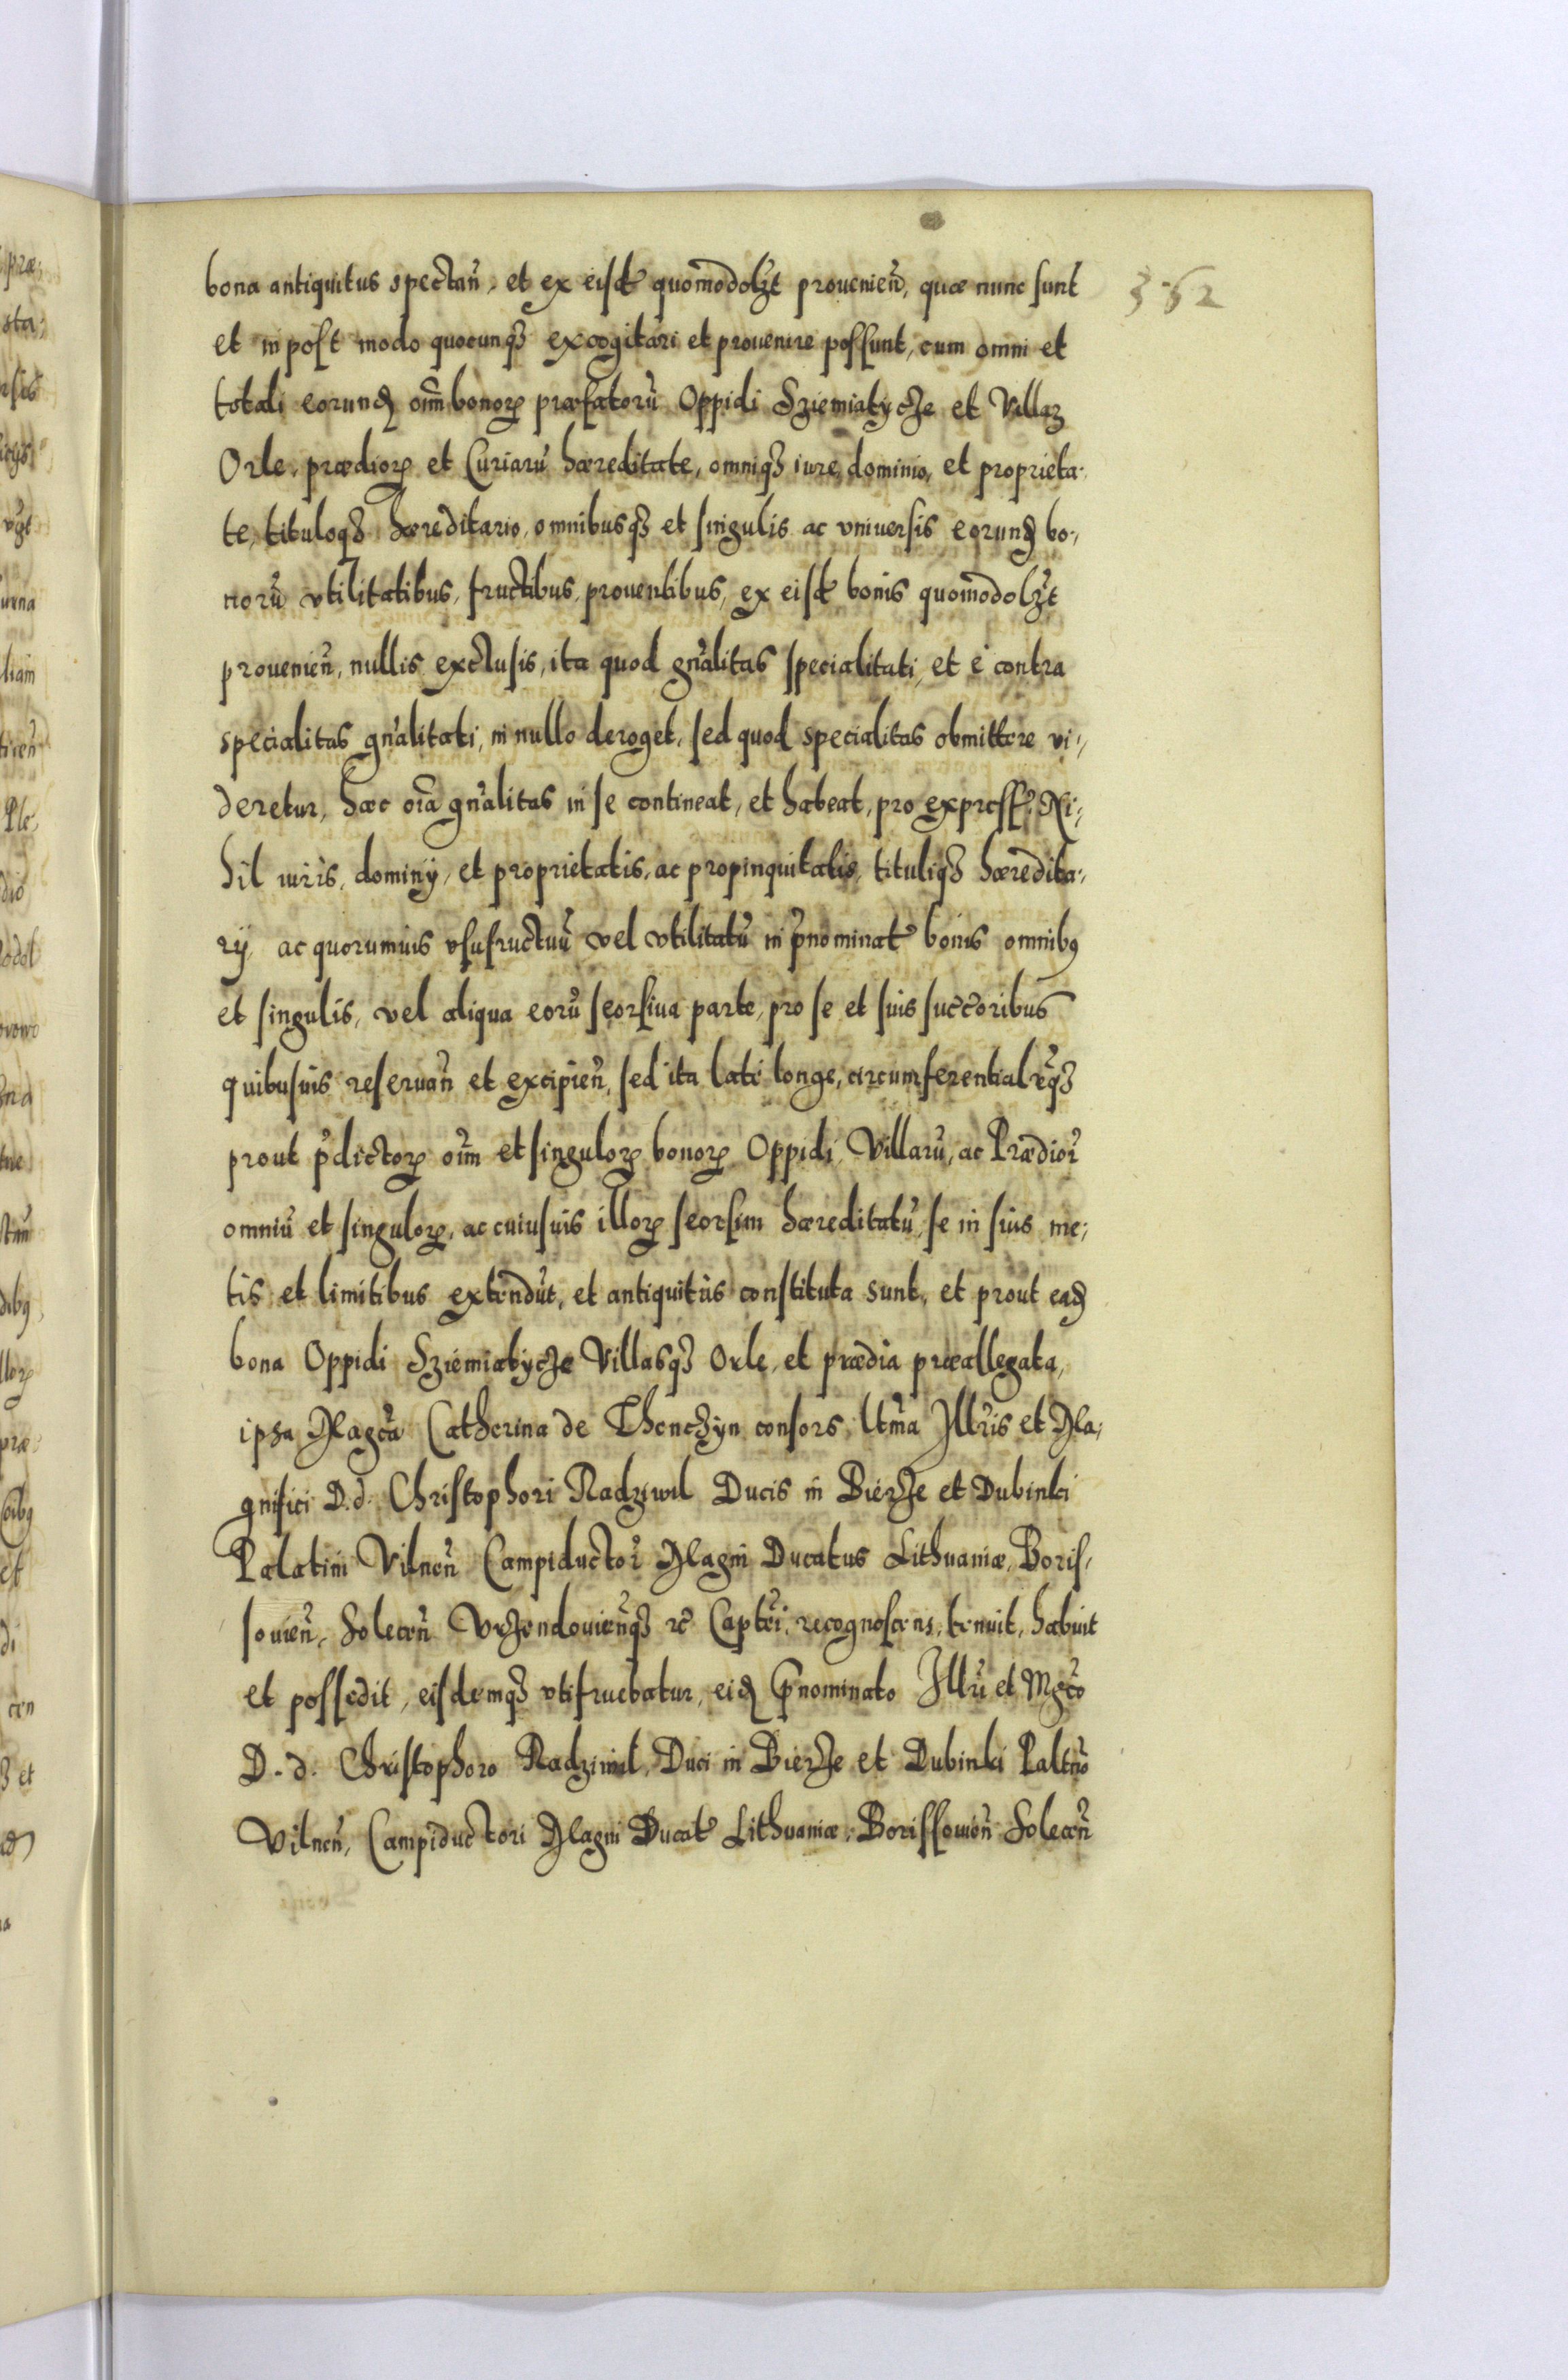 362
bona antiquitus spectan̄, et ex eisd̄ quomodolꝫt prouenien̄, quæ nunc sunt
et in post modo quocunqꝫ excogitari et prouenire possunt, cum omni et
totali eorund̄ oīm bonorꝝ præfatorū Oppidi Sziemiatycze et Villarꝫ
Orle, prædiorꝝ et Curiarū hæreditate, omniqꝫ iure, dominio, et proprieta-
te, tituloqꝫ hæreditario, omnibusqꝫ et singulis ac vniuersis eorund̄ bo-
norū vtilitatibus, fructibus, prouentibus, ex eisd̄ bonis quomodolꝫt
prouenien̄, nullis exclusis, ita quod gn̄alitas specialitati, et è contra
specialitas gn̄alitati, in nullo deroget, sed quod specialitas obmittere vi-
deretur, hæc oīa gn̄alitas in se contineat, et habeat, pro express̄. Ni-
hil iuris, dominij, et proprietatis, ac propinquitatis, tituliqꝫ hæredita-
rij, ac quorumuis vsufructuū vel vtilitatū in p̄nominat̄ bonis omnibꝰ
et singulis, vel aliqua eorū seorsiua parte, pro se et suis succ̄oribus
quibusuis reseruan̄ et excipien̄, sed ita latè longe, circumferentialr̄qꝫ
prout p̄dictorꝝ oīm et singulorꝝ bonorꝝ Oppidi, Villarū, ac Prædior̄
omniū et singulorꝝ, ac cuiusuis illorꝝ seorsim hæreditatū, se in suis me-
tis et limitibus extendūt, et antiquitùs constituta sunt, et prout ead̄
bona Oppidi Sziemiatycze Villasqꝫ Orle, et prædia præallegata,
ipsa Magc̄a Catherina de Thenczyn consors ltm̄a Illr̄is et Ma-
gnifici D. d. Christophori Radziwil Ducis in Bierże et Dubinki
Palatini Vilnen̄ Campiductor̄ Magni Ducatus Lithuaniæ, Boris-
souien̄, Solecen̄ Vrzendouien̄qꝫ rc̄ Capt̄ei, recognoscens, tenuit, habuit
et possedit, eisdemqꝫ vtifruebatur, eid̄ p̄nominato Illr̄i et Mgc̄o
D. d. Christophoro Radziwil, Duci in Bierże et Dubinki Paltn̄o
Vilnen̄, Campiductori Magni Ducat̄ Lithuaniæ, Borissouien̄ Solecen̄